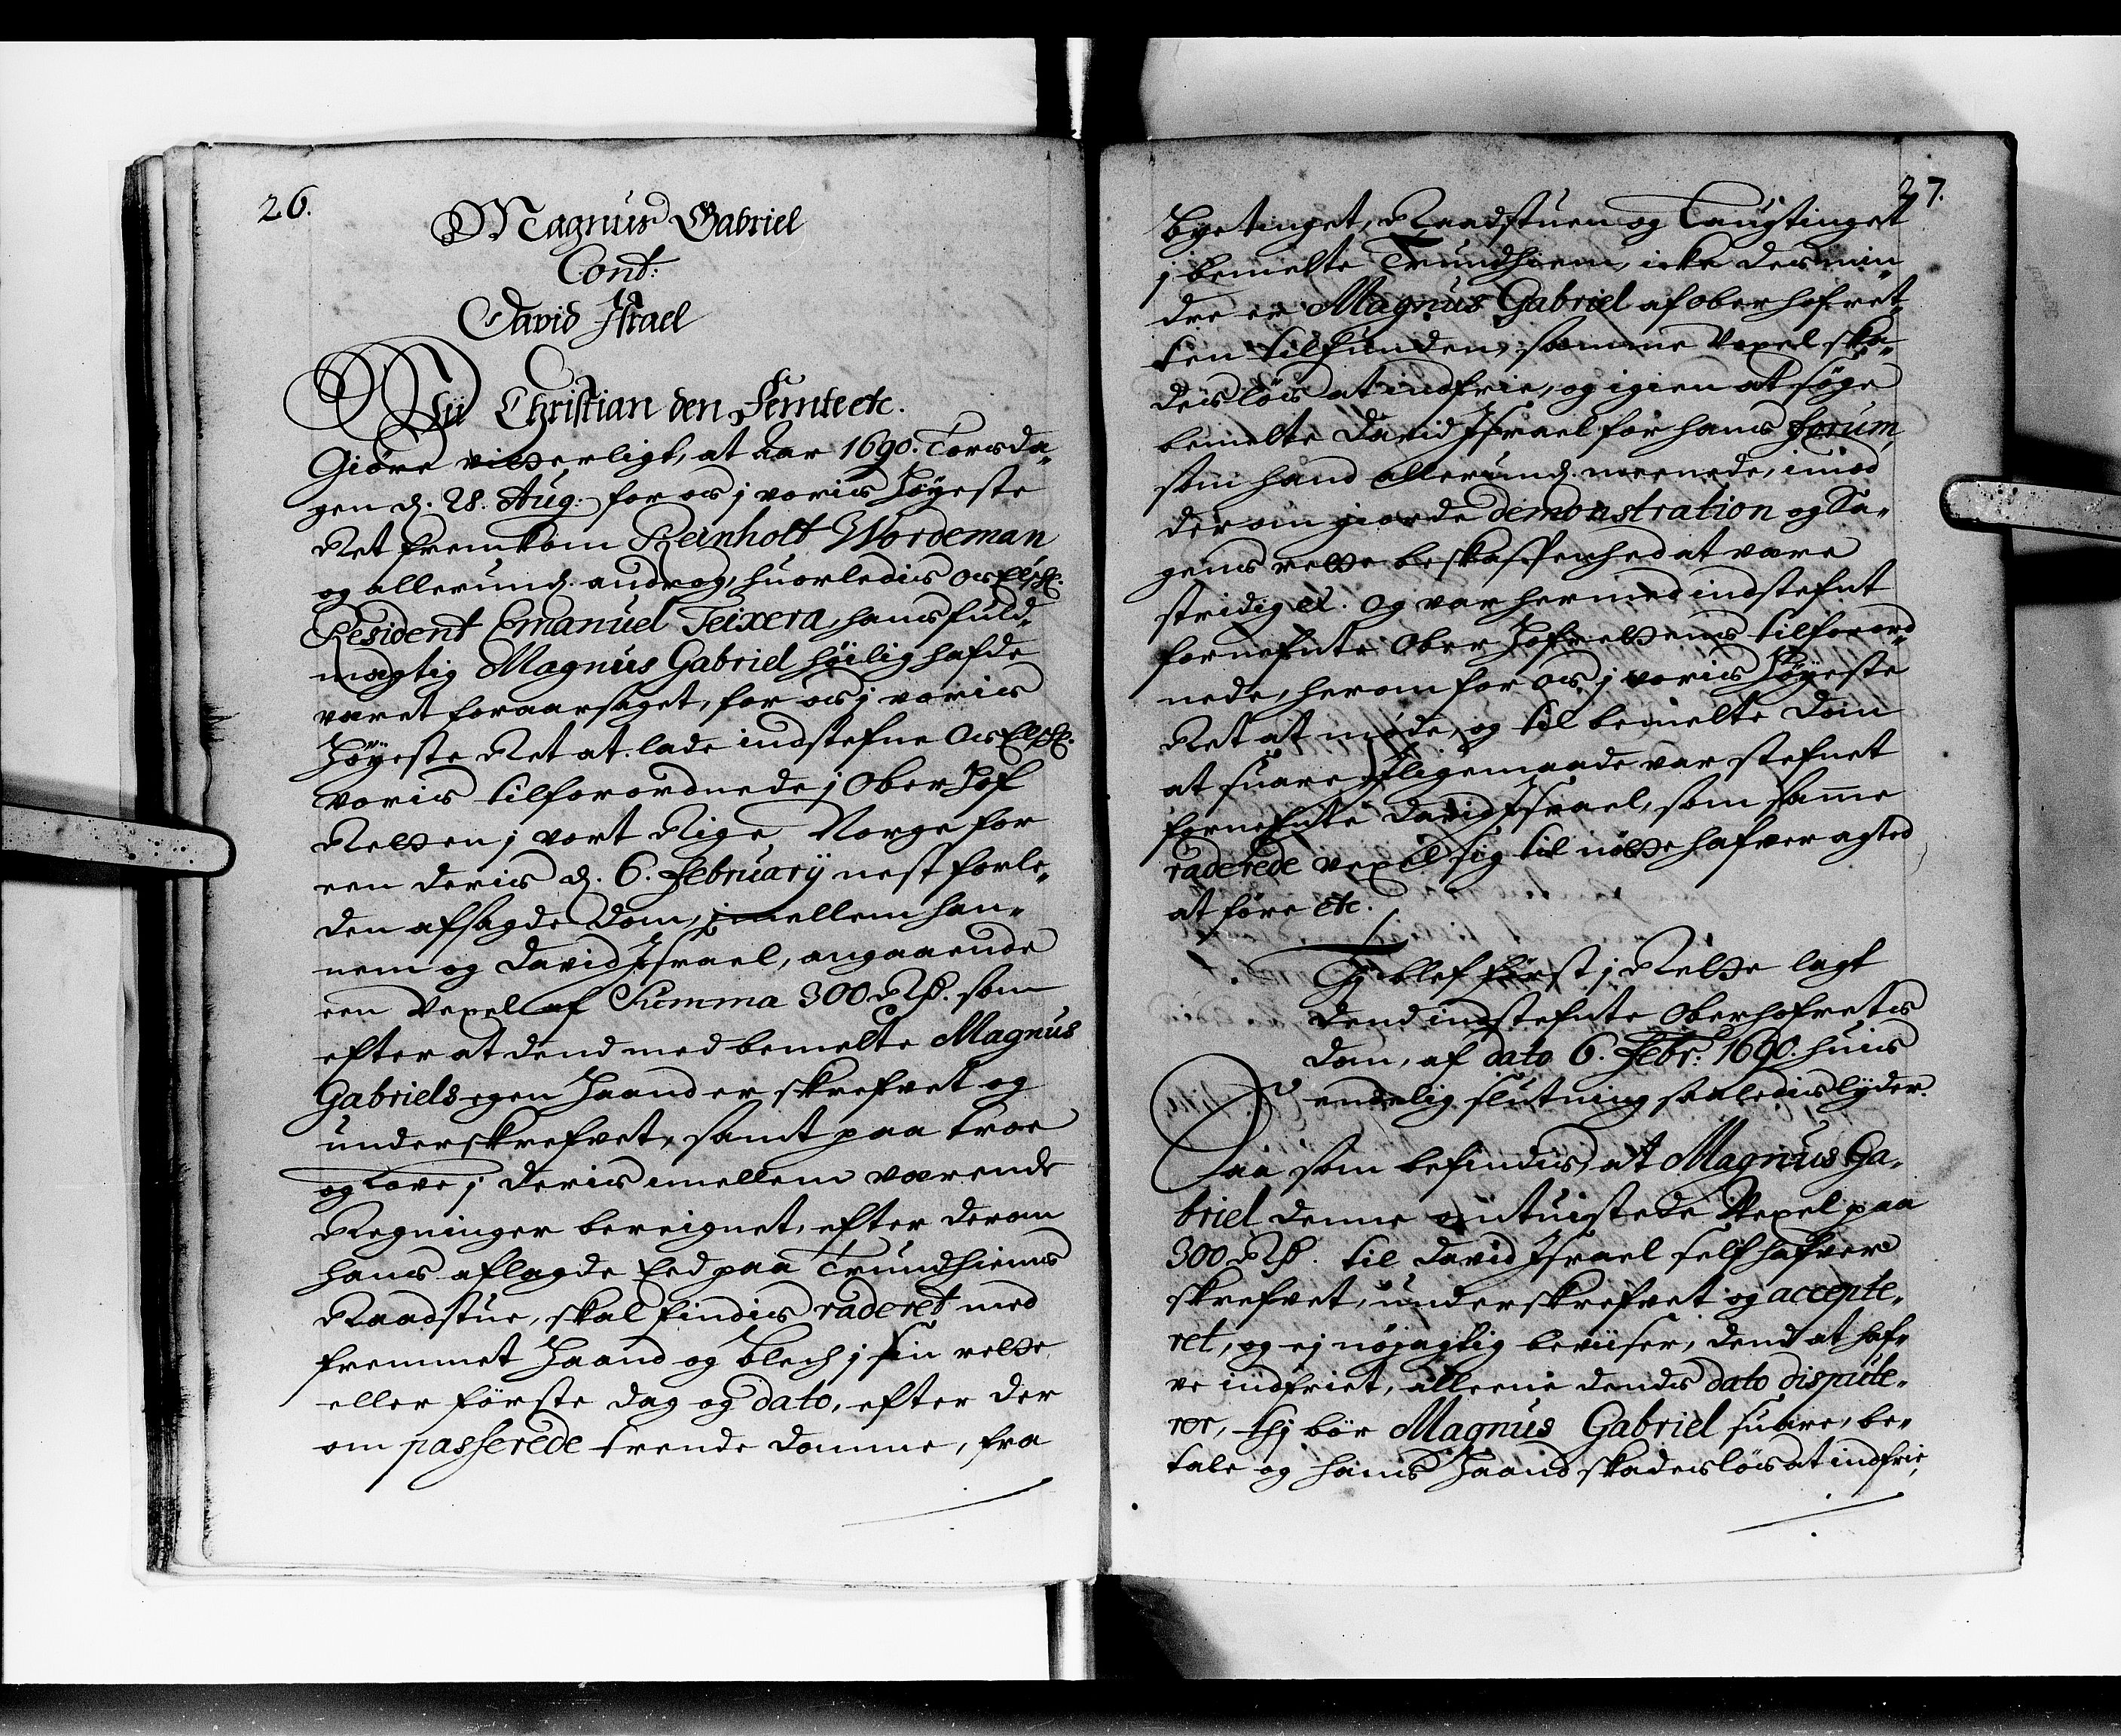 26.
Magnus Gabriel
Cont:
David Israel
Vii Christian den Femte etc.
Giöre vitterligt, at Aar 1690. Torsda„
gen d. 28. Aug: for os j voris Høyeste
Ret fremkom Reinholt Wordeman
og allerund. androg, huorledis Os Elsk:
Resident Emanuel Teixera, hans fuld„
mægtig Magnus Gabriel höilig hafde
været foraarsaget, for os j voris
Høyeste Ret at lade indstefne Os Elsk:
voris tilforordnede j Ober Hof
Retten j vort Rige Norge for
een deris d. 6. February nest forle„
den afsagde Dom, imellem han„
nem og David Israel, angaaende
een Vexel af Summa 300 Rd. som
efter at dend med bemelte Magnus
Gabriels egen Haand er skrefvet og
underskrefvet, samt paa troe
og love j deris imellem værende
Regninger bereignet, efter derom
hans aflagde Eed paa Trundhiems
Raadstue, skal findis raderet med
fremmet Haand og blech j sin rette
eller förste dag og dato, efter der
om passerede trende domme, fra
27.
Byetinget, Raadstuen og Laugtinget
j bemelte Trundhiem, icke des min„
dre er Magnus Gabriel af oberhofret„
ten tilfunden, samme Vexel ska„
desløs at indfrie, og igien at søge
bemelte David Israel for hans forum,
som hand allerund. meenede, imod
derom giorde demonstration og Sa„
gens rette beskaffenhed at være
stridig etc. Og var hermed indstefnt
fornefnte Ober Hofrettens tilforord„
nede, herom for os j voris Høyeste
Ret at møde, og til bemelte Dom
at suare, Ligemaade var stefnet
fornefnte David Israel, som samme
raderede vexel sig til nötte hafver agted
at føre etc.
Tj blef först j Rette lagt
dend indstefnte Oberhofrets
dom, af dato 6. Febr: 1690. huis
endelig slutning saaledis lyder.
Saa som befindis, at Magnus Ga„
briel denne omtuistede Vexel paa
300 Rd. til David Israel self hafver
skrefvet, underskrefvet og accepte„
ret, og ej nøjagtig beviiser, dend at haf„
ve indfriet, alleene dends dato dispute„
rer, thj bör Magnus Gabriel suare, be„
tale og hans Haand skadesløs at indfrie,